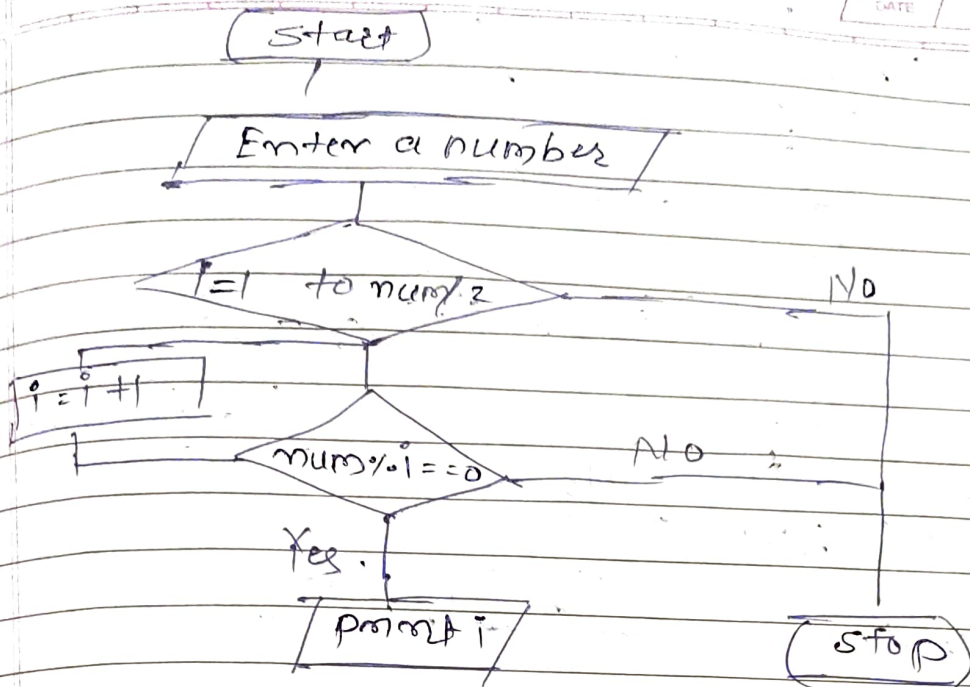 DATE
Start
Enter a number
i=1 to num/2
No
i=i+1
num%i==0
No
Yes.
print i
stop